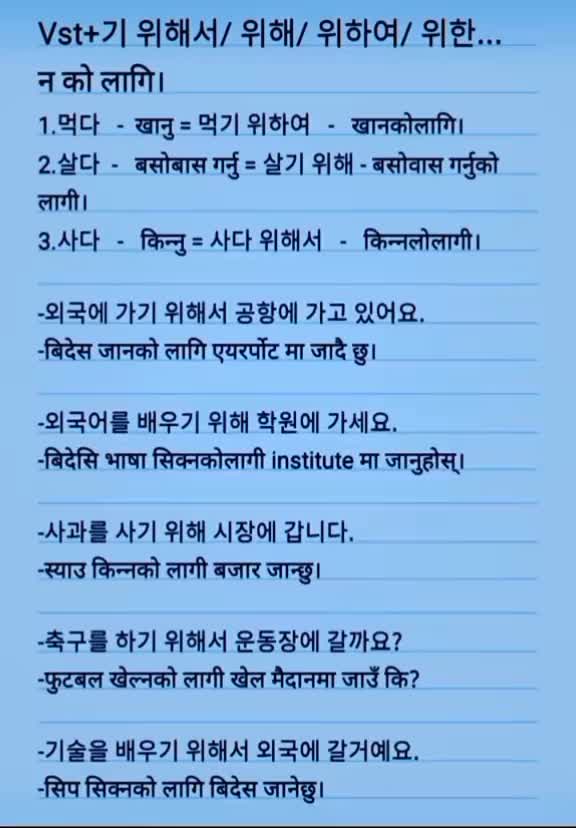 Vst+기 위해서/ 위해/ 위하여/ 위한...
न को लागि।
1.먹다 - खानु = 먹기 위하여 - खानकोलागि।
2.살다 - बसोबास गर्नु = 살기 위해 - बसोवास गर्नुको
लागी।
3.사다 - किन्नु = 사다 위해서 - किन्नलोलागी।
-외국에 가기 위해서 공항에 가고 있어요.
-बिदेस जानको लागि एयरर्पोट मा जादै छु।
-외국어를 배우기 위해 학원에 가세요.
-बिदेसि भाषा सिक्नकोलागी institute मा जानुहोस्।
-사과를 사기 위해 시장에 갑니다.
-स्याउ किन्नको लागी बजार जान्छु।
-축구를 하기 위해서 운동장에 갈까요?
-फुटबल खेल्नको लागी खेल मैदानमा जाउँ कि?
-기술을 배우기 위해서 외국에 갈거예요.
-सिप सिक्नको लागि बिदेस जानेछु।